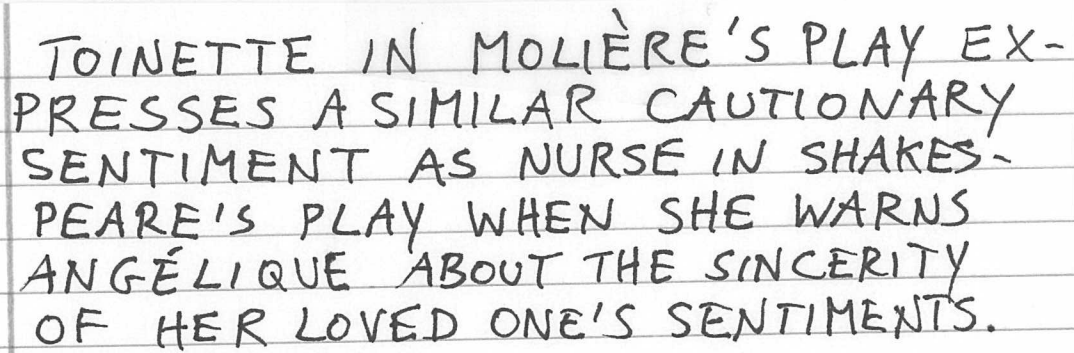 TOINETTE IN MOLIÈRE'S PLAY EX-
PRESSES A SIMILAR CAUTIONARY
SENTIMENT AS NURSE IN SHAKES-
PEARE'S PLAY WHEN SHE WARNS
ANGÉLIQUE ABOUT THE SINCERITY
OF HER LOVED ONE'S SENTIMENTS.